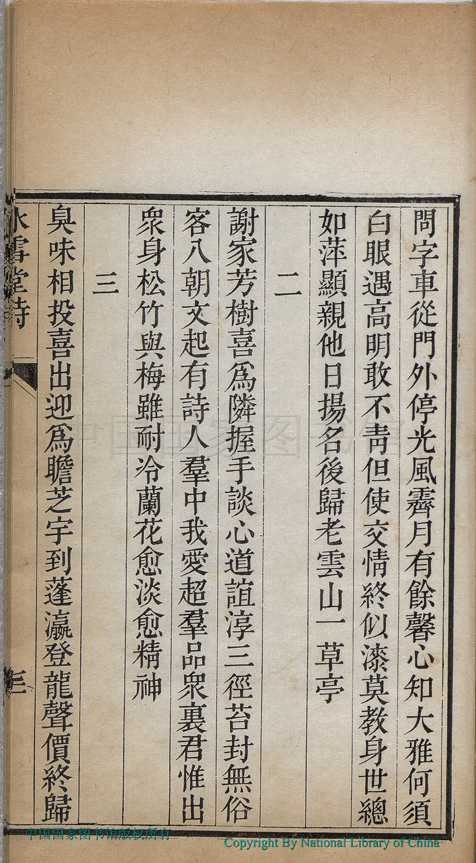 問字車從門外停光風霽月有餘馨心知大雅何須
白眼遇高明敢不靑但使交情終似漆莫教身世總
如萍顯親他日揚名後歸老雲山一草亭
二
謝家芳樹喜爲隣握手談心道誼淳三徑苔封無俗
客八朝文起有詩人羣中我愛超羣品衆裏君惟出
衆身松竹與梅雖耐冷蘭花愈淡愈精神
三
臭味相投喜出迎爲瞻芝宇到蓬瀛登龍聲價終歸
冰雪堂詩
三
中国国家图书馆
中国国家图书馆版权所有
Copyright By National Library of China